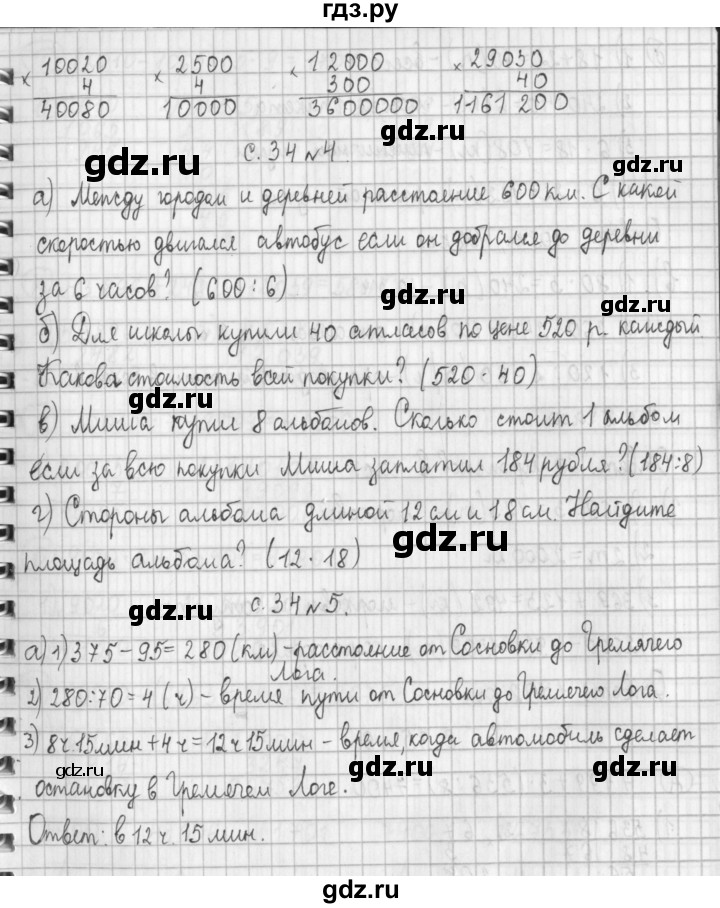 гдз.ру
× 10020 × 2500 × 12000 × 29030
4 4 300 40
40080 10000 3600000 1161200
gdz.ru с. 34 №4. gdz.ru gdz.ru
а) Между городом и деревней расстояние 600 км. С какой
скоростью двигался автобус если он добрался до деревни
за 6 часов? (600:6) gdz.ru gdz.ru
б) Для школы купили 40 атласов по цене 520 р. каждый.
Какова стоимость всей покупки? (520·40)
gdz.ru
в) Миша купил 8 альбомов. Сколько стоит 1 альбом
если за всю покупки Миша заплатил 184 рубля? (184:8)
г) Стороны альбома длиной 12 см и 18 см. Найдите
gdz.ru
площадь альбома? (12·18)
gdz.ru с. 34 №5. gdz.ru
а) 1) 375-95=280 (км) - расстояние от Сосновки до Гремячего
Лога.
2) 280:70=4 (ч) - время пути от Сосновки до Гремячего Лога.
3) 8ч.15мин+4ч=12ч15мин - время, когда автомобиль сделает
gdz.ru gdz.ru gdz.ru
остановку в Гремячем Логе.
Ответ: в 12 ч. 15 мин.
gdz.ru